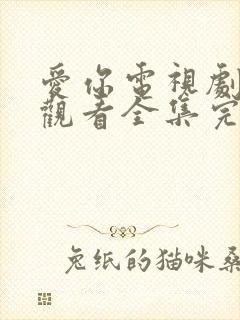 愛你電視劇
觀看全集完
兔纸的猫咪桑